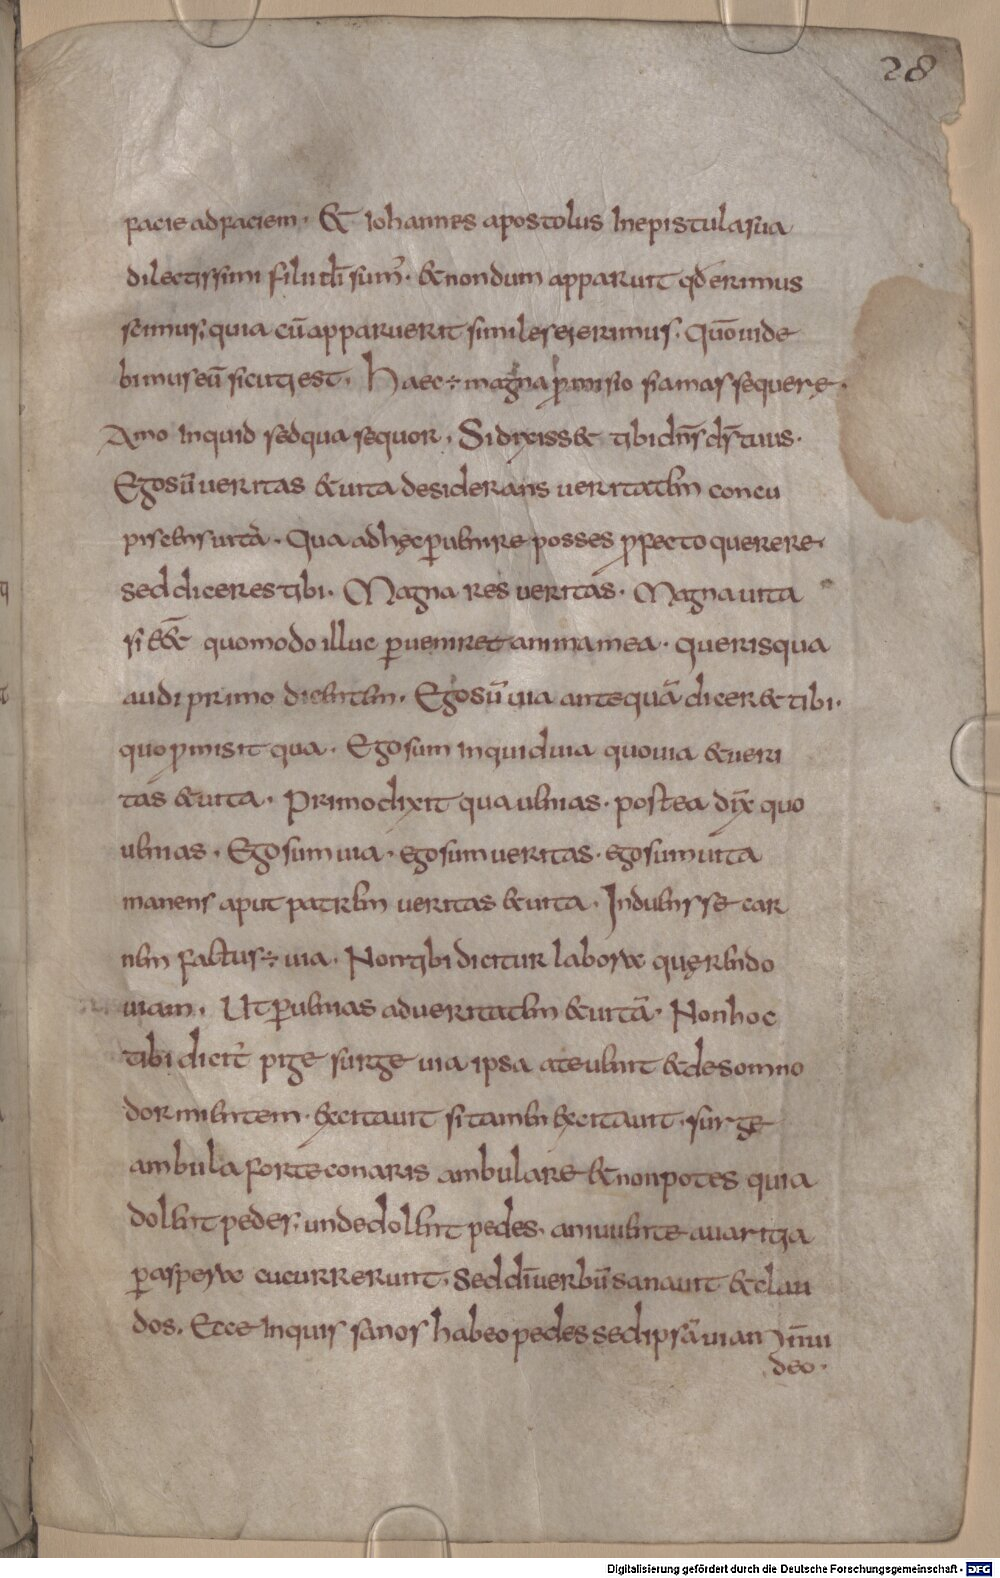 28
facie ad faciem. & Iohannes apostolus In epistula sua
dilectissimi filii di̅ sum᷒. & nondum apparuit qđ erimus
scimus; quia cu̅ apparuerit similes ei erimus. Quo̅ uide
bimus eu̅ sicuti est. Haec ÷ magna p̱misio si amas sequere.
Amo Inquid sed qua sequor. Si dixiss& tibi dn̅s ds̅ tuus.
Ego su̅ ueritas & uita desiderans ueritatem concu
piscens uita̅. Qua ad hęc p̱uenire posses p̱fecto querere.
sed diceres tibi. Magna res ueritas. Magna uita
si e̅& quomodo illuc p̱ueniret anima mea. Queris qua
audi primo dicentem. Ego su̅ uia antequa̅ dicer& tibi.
quo p̱misit qua. Ego sum Inquid uia quo uia & ueri
tas & uita. Primo dixit qua uenias. postea dix̅ quo
uenias. Ego sum uia. ego sum ueritas. ego sum uita
manens aput patrem ueritas & uita. Induens se car
nem factus ÷ uia. Non tibi dicitur labora quęrendo
uiam. Ut p̱uenias ad ueritatem & uita̅. Non hoc
tibi dicit᷒ pige surge uia ipsa ate uenit & de somno
dormientem. excitauit si tamen excitauit. surge
ambula forte conaris ambulare & non potes quia
dolent pedes; unde dolent pedes. an iuuente auaritia
p̱ aspera cucurrerunt. Sed di̅ uerbu̅ sanauit & clau
dos. Ecce Inquis sanos habeo pedes sed ipsa̅ uiam n̅ ui
deo.
Digitalisierung gefördert durch die Deutsche Forschungsgemeinschaft - DFG